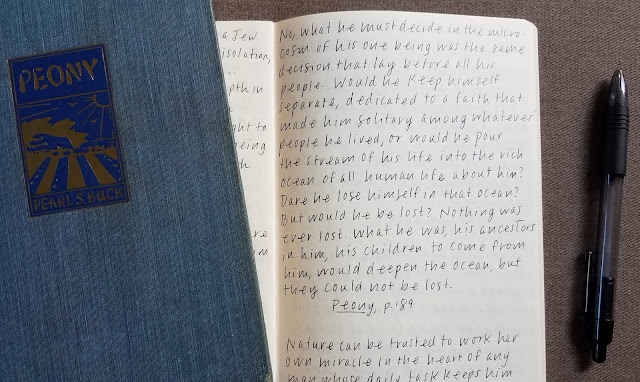 PEONY
PEARL S. BUCK
a Jew
isolation,
...
pth in
ght to
eing
th
re
im
No, what he must decide in the micro-
cosm of his one being was the same
decision that lay before all his
people. Would he keep himself
separate, dedicated to a faith that
made him solitary among whatever
people he lived, or would he pour
the stream of his life into the rich
ocean of all human life about him?
Dare he lose himself in that ocean?
But would he be lost? Nothing was
ever lost. What he was, his ancestors
in him, his children to come from
him, would deepen the ocean, but
they could not be lost.
Peony, p. 189
Nature can be trusted to work her
own miracle in the heart of any
man whose daily task keeps him